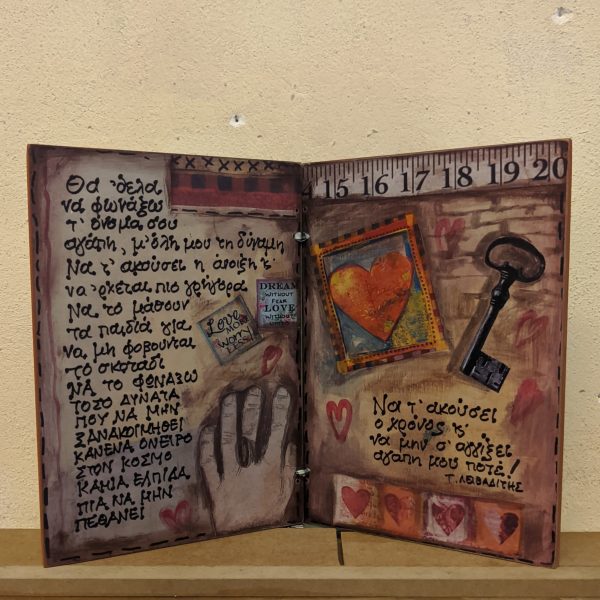 Θα 'θελα
να φωνάξω
τ' όνομα σου
αγάπη, μ' όλη μου τη δύναμη
Να τ' ακούσει η άνοιξη κ'
να 'ρχεται πιο γρήγορα
Να το μάθουν
τα παιδιά για
να μη φοβούνται
το σκοτάδι
ΝΑ ΤΟ ΦΩΝΑΞΩ
ΤΟΣΟ ΔΥΝΑΤΑ
ΠΟΥ ΝΑ ΜΗΝ
ΞΑΝΑΚΟΙΜΗΘΕΙ
ΚΑΝΕΝΑ ΟΝΕΙΡΟ
ΣΤΟΝ ΚΟΣΜΟ
ΚΑΜΙΑ ΕΛΠΙΔΑ
ΠΙΑ ΝΑ ΜΗΝ
ΠΕΘΑΝΕΙ
Love
MORE
worry
LESS
DREAM
WITHOUT
FEAR
LOVE
WITHOUT
4 15 16 17 18 19 20
Να τ' ακούσει
ο χρόνος κ'
να μην σ' αγγίξει
αγάπη μου ποτέ!
Τ. ΛΕΙΒΑΔΙΤΗΣ